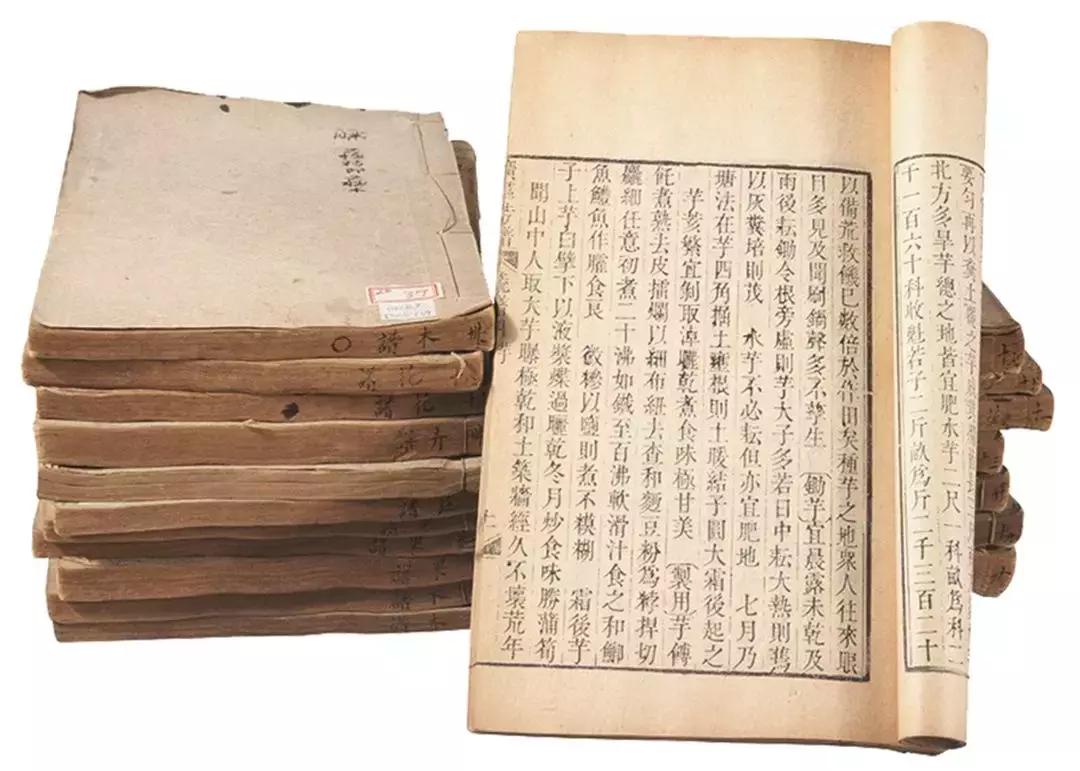 要匀再以糞土覆之芋
北方多旱芋總之地皆宜肥水芋二尺一科畝爲科二
千一百六十科收魁若子二斤畝爲斤二千三百二十
以備荒救饑已數倍於作田矣種芋之地衆人往來眼
目多見及聞刷鍋聲多不孳生 鋤芋宜晨露未乾及
雨後耘鋤令根旁虛則芋大子多若日中耘大熱則蔫
以灰糞培則茂 水芋不必耘但亦宜肥地 七月乃
塘法在芋四角掘土壅根則土暖結子圓大霜後起之
芋荄繁宜剝取淖曬乾煮食味極甘美 製用芋餺
飥煮熟去皮擂爛以細布紐去查和麵豆粉爲粰捍切
麤細任意初煮二十沸如鐵至百沸軟滑汁食之和鯽
魚鱧魚作臛食良 微糝以鹽則煮不糢糊 霜後芋
子上芋白擘下以液漿煠過曬乾冬月炒食味勝蒲筍
聞山中人取大芋曝極乾和土築牆經久不壞荒年
37
木譜